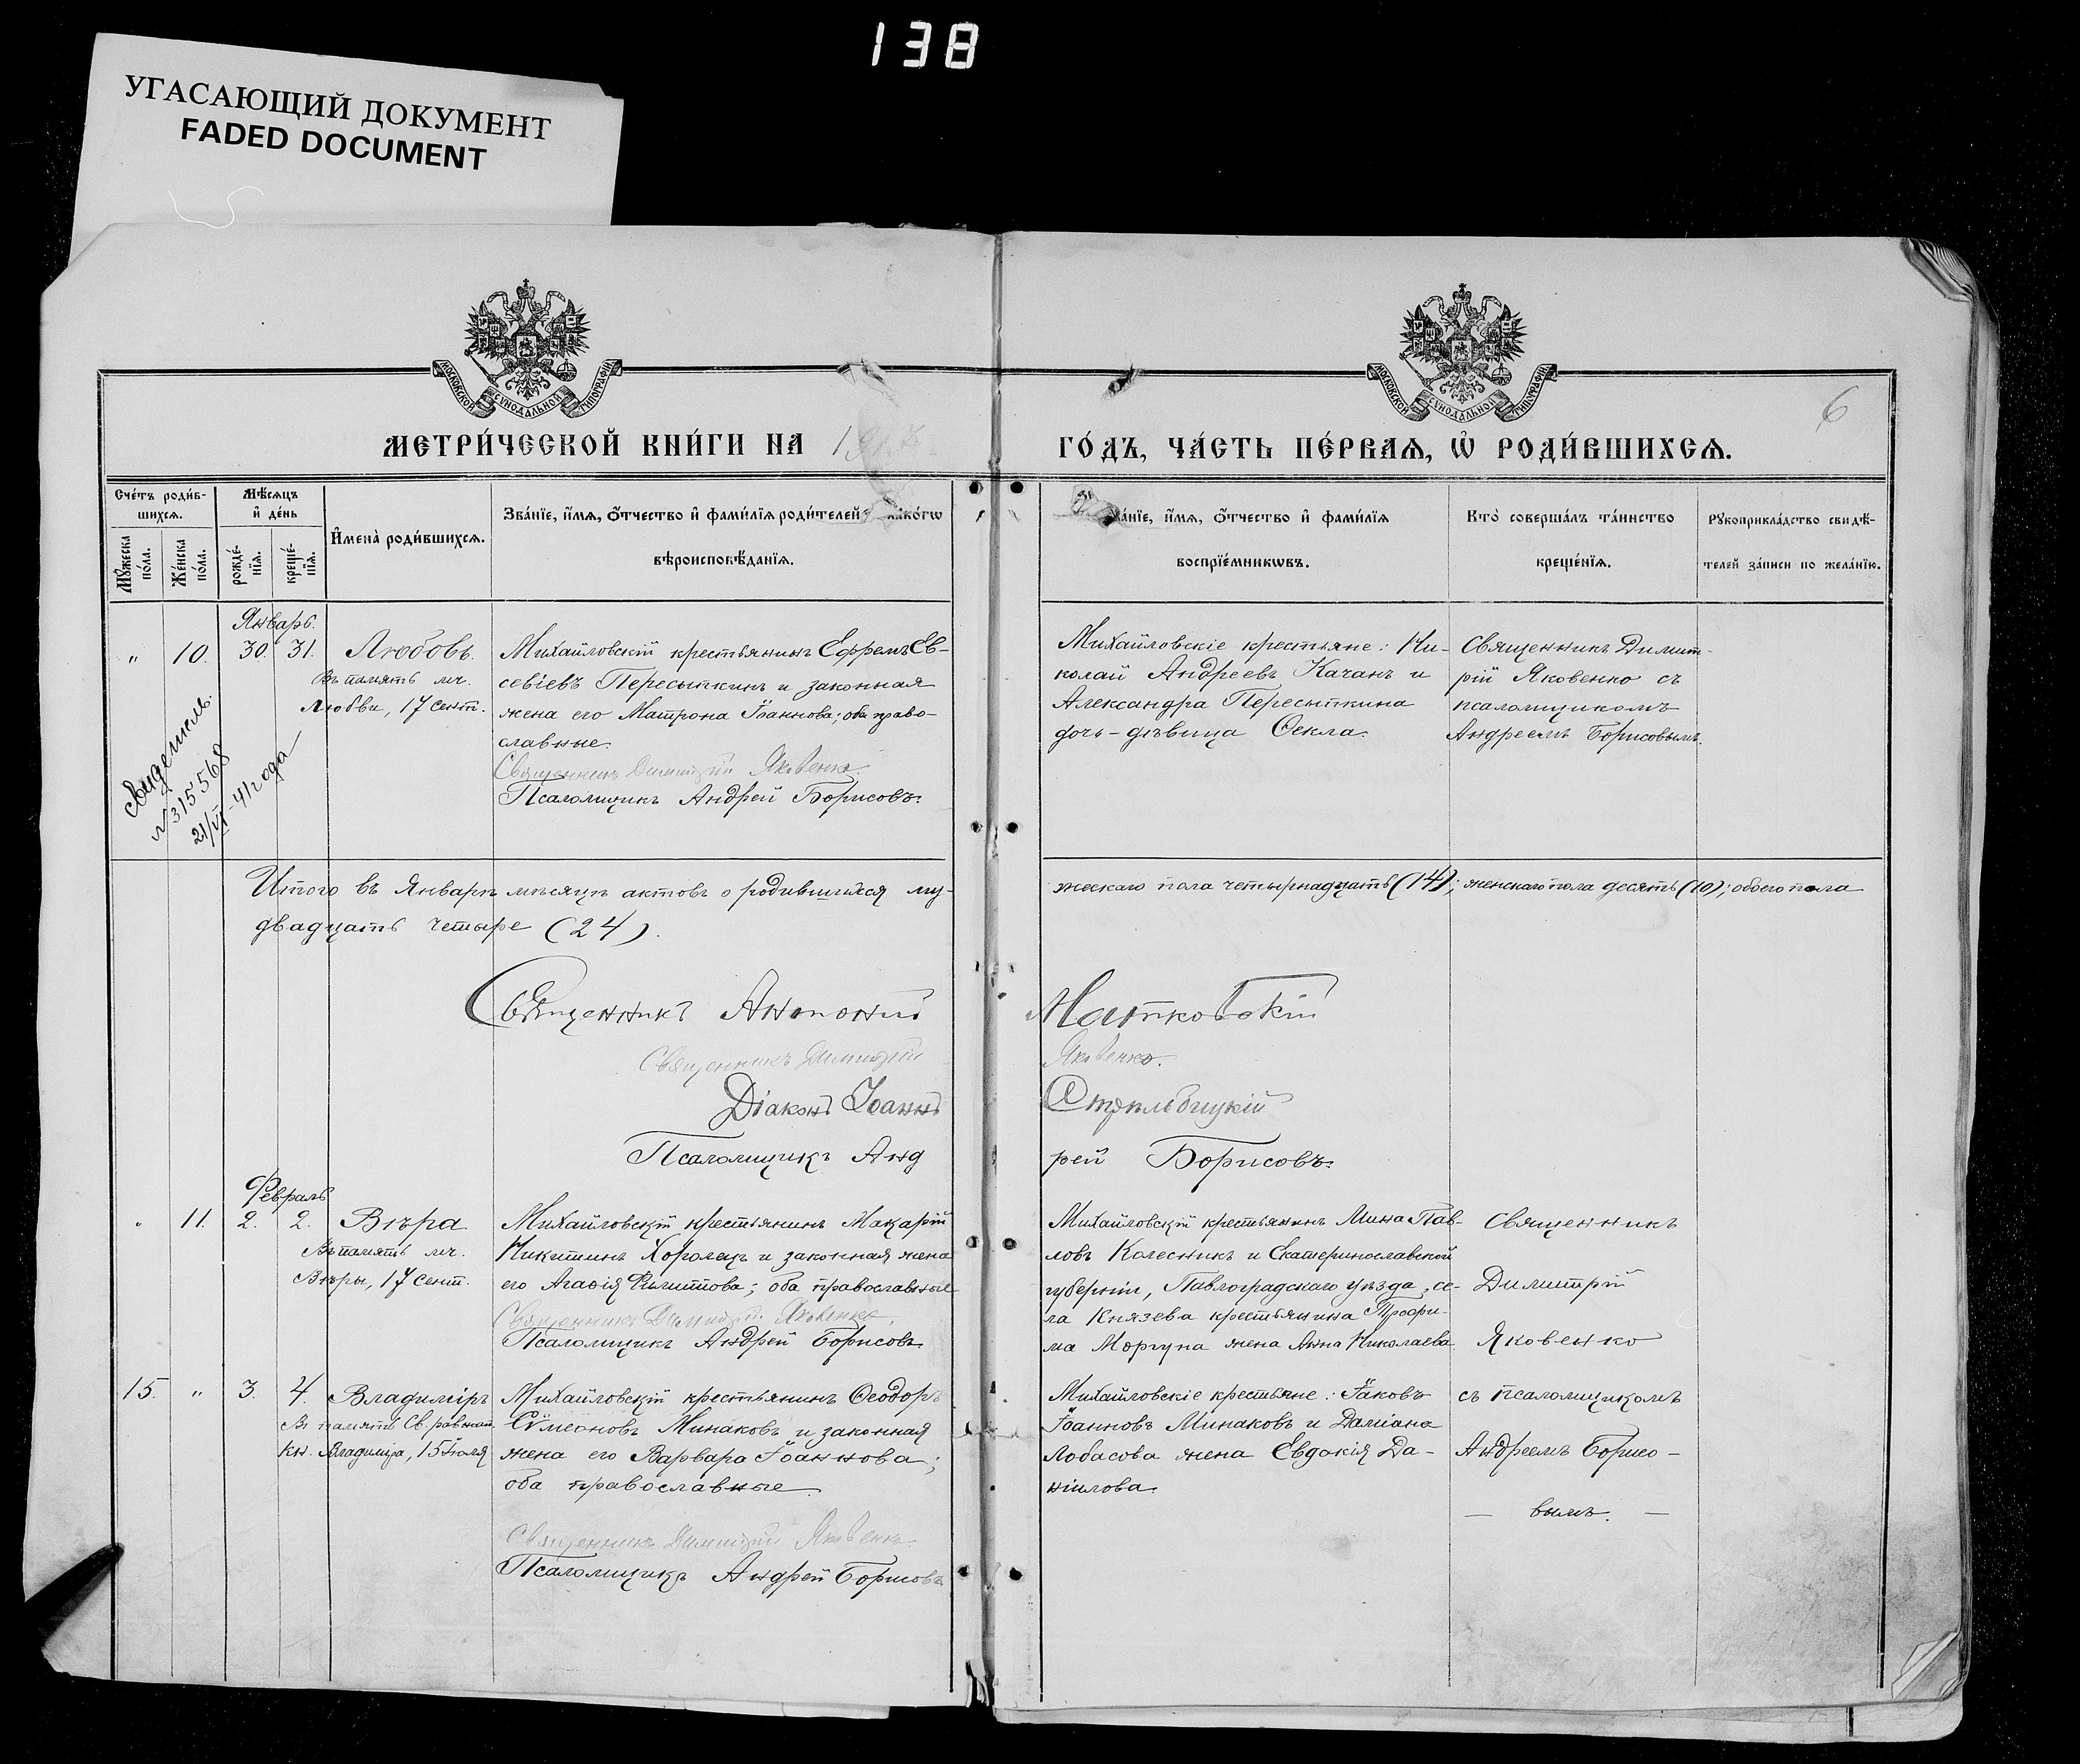 138
УГАСАЮЩИЙ ДОКУМЕНТ
FADED DOCUMENT
МОСКОВСКОЙ СѴНОДАЛЬНОЙ ТИПОГРАФІИ
МОСКОВСКОЙ СѴНОДАЛЬНОЙ ТИПОГРАФІИ
6
МЕТРИ́ЧЕСКОЙ КНИ́ГИ НА 19
ГО́ДЪ, ЧА́СТЬ ПЕ́РВАѦ, Ѡ҆ РОДИ́ВШИХСѦ.
Сче́тъ роди́в-
шихсѧ.
Мꙋ́жеска по́ла.
Же́нска по́ла.
Мѣ́сѧцъ
и҆ де́нь
рожде́-
нїѧ.
креще́-
нїѧ.
И҆мена̀ роди́вшихсѧ.
Зва́нїе, и҆́мѧ, ѻ҆́тчество и҆ фами́лїѧ роди́телей, како́гѡ
вѣроисповѣ́данїѧ.
Зва́нїе, и҆́мѧ, ѻ҆́тчество и҆ фами́лїѧ
воспрїе́мникѡвъ.
Кто̀ соверша́лъ та́инство
креще́нїѧ.
Рꙋкоприкла́дство свидѣ́-
телей за́писи по жела́нїю.
Январь.
" 10. 30. 31. Любовь.
Въ память мч.
Любви, 17 сент.
Михайловскій крестьянинъ Ефремъ Ев-
севіевъ Пересыпкинъ и законная
жена его Матрона Іоаннова; оба право-
славные.
Священникъ Димитрій Яковенко.
Псаломщикъ Андрей Борисовъ.
Михайловскіе крестьяне: Ни-
колай Андреевъ Качанъ и
Александра Пересыпкина
дочь-дѣвица Ѳекла.
Священникъ Димит-
рій Яковенко съ
псаломщикомъ
Андреемъ Борисовымъ.
№ 315568
21/VI-41 года
Итого въ Январѣ мѣсяцѣ актовъ о родившихся му-
жескаго пола четырнадцать (14); женскаго пола десять (10); обоего пола
двадцать четыре (24).
Священникъ Антоній Матковскій
Священникъ Димитрій Яковенко.
Діаконъ Іоаннъ Стрѣльбицкій
Псаломщикъ Анд рей Борисовъ.
Февраль
" 11. 2. 2. Вѣра
Въ память мч.
Вѣры, 17 сент.
Михайловскій крестьянинъ Макарій
Никитинъ Хоролецъ и законная жена
его Агаѳія Филиппова; оба православные
Священникъ Димитрій Яковенко.
Псаломщикъ Андрей Борисовъ.
Михайловскій крестьянинъ Мина Пав-
ловъ Колесникъ и Екатеринославской
губерніи, Павлоградскаго уѣзда, се-
ла Князева крестьянина Трофи-
ма Моргуна жена Анна Николаева
Священникъ
Димитрій
Яковенко
15. " 3. 4. Владиміръ
Въ память Св. равноап.
кн. Владиміра, 15 Іюля
Михайловскій крестьянинъ Ѳеодоръ
Сѵмеоновъ Минаковъ и законная
жена его Варвара Іоаннова;
оба православные.
Священникъ Димитрій Яковенко.
Псаломщикъ Андрей Борисовъ
Михайловскіе крестьяне: Іаковъ
Іоанновъ Минаковъ и Даміана
Лобасова жена Евдокія Да-
ніилова.
съ псаломщикомъ
Андреемъ Борисо-
— вымъ. —